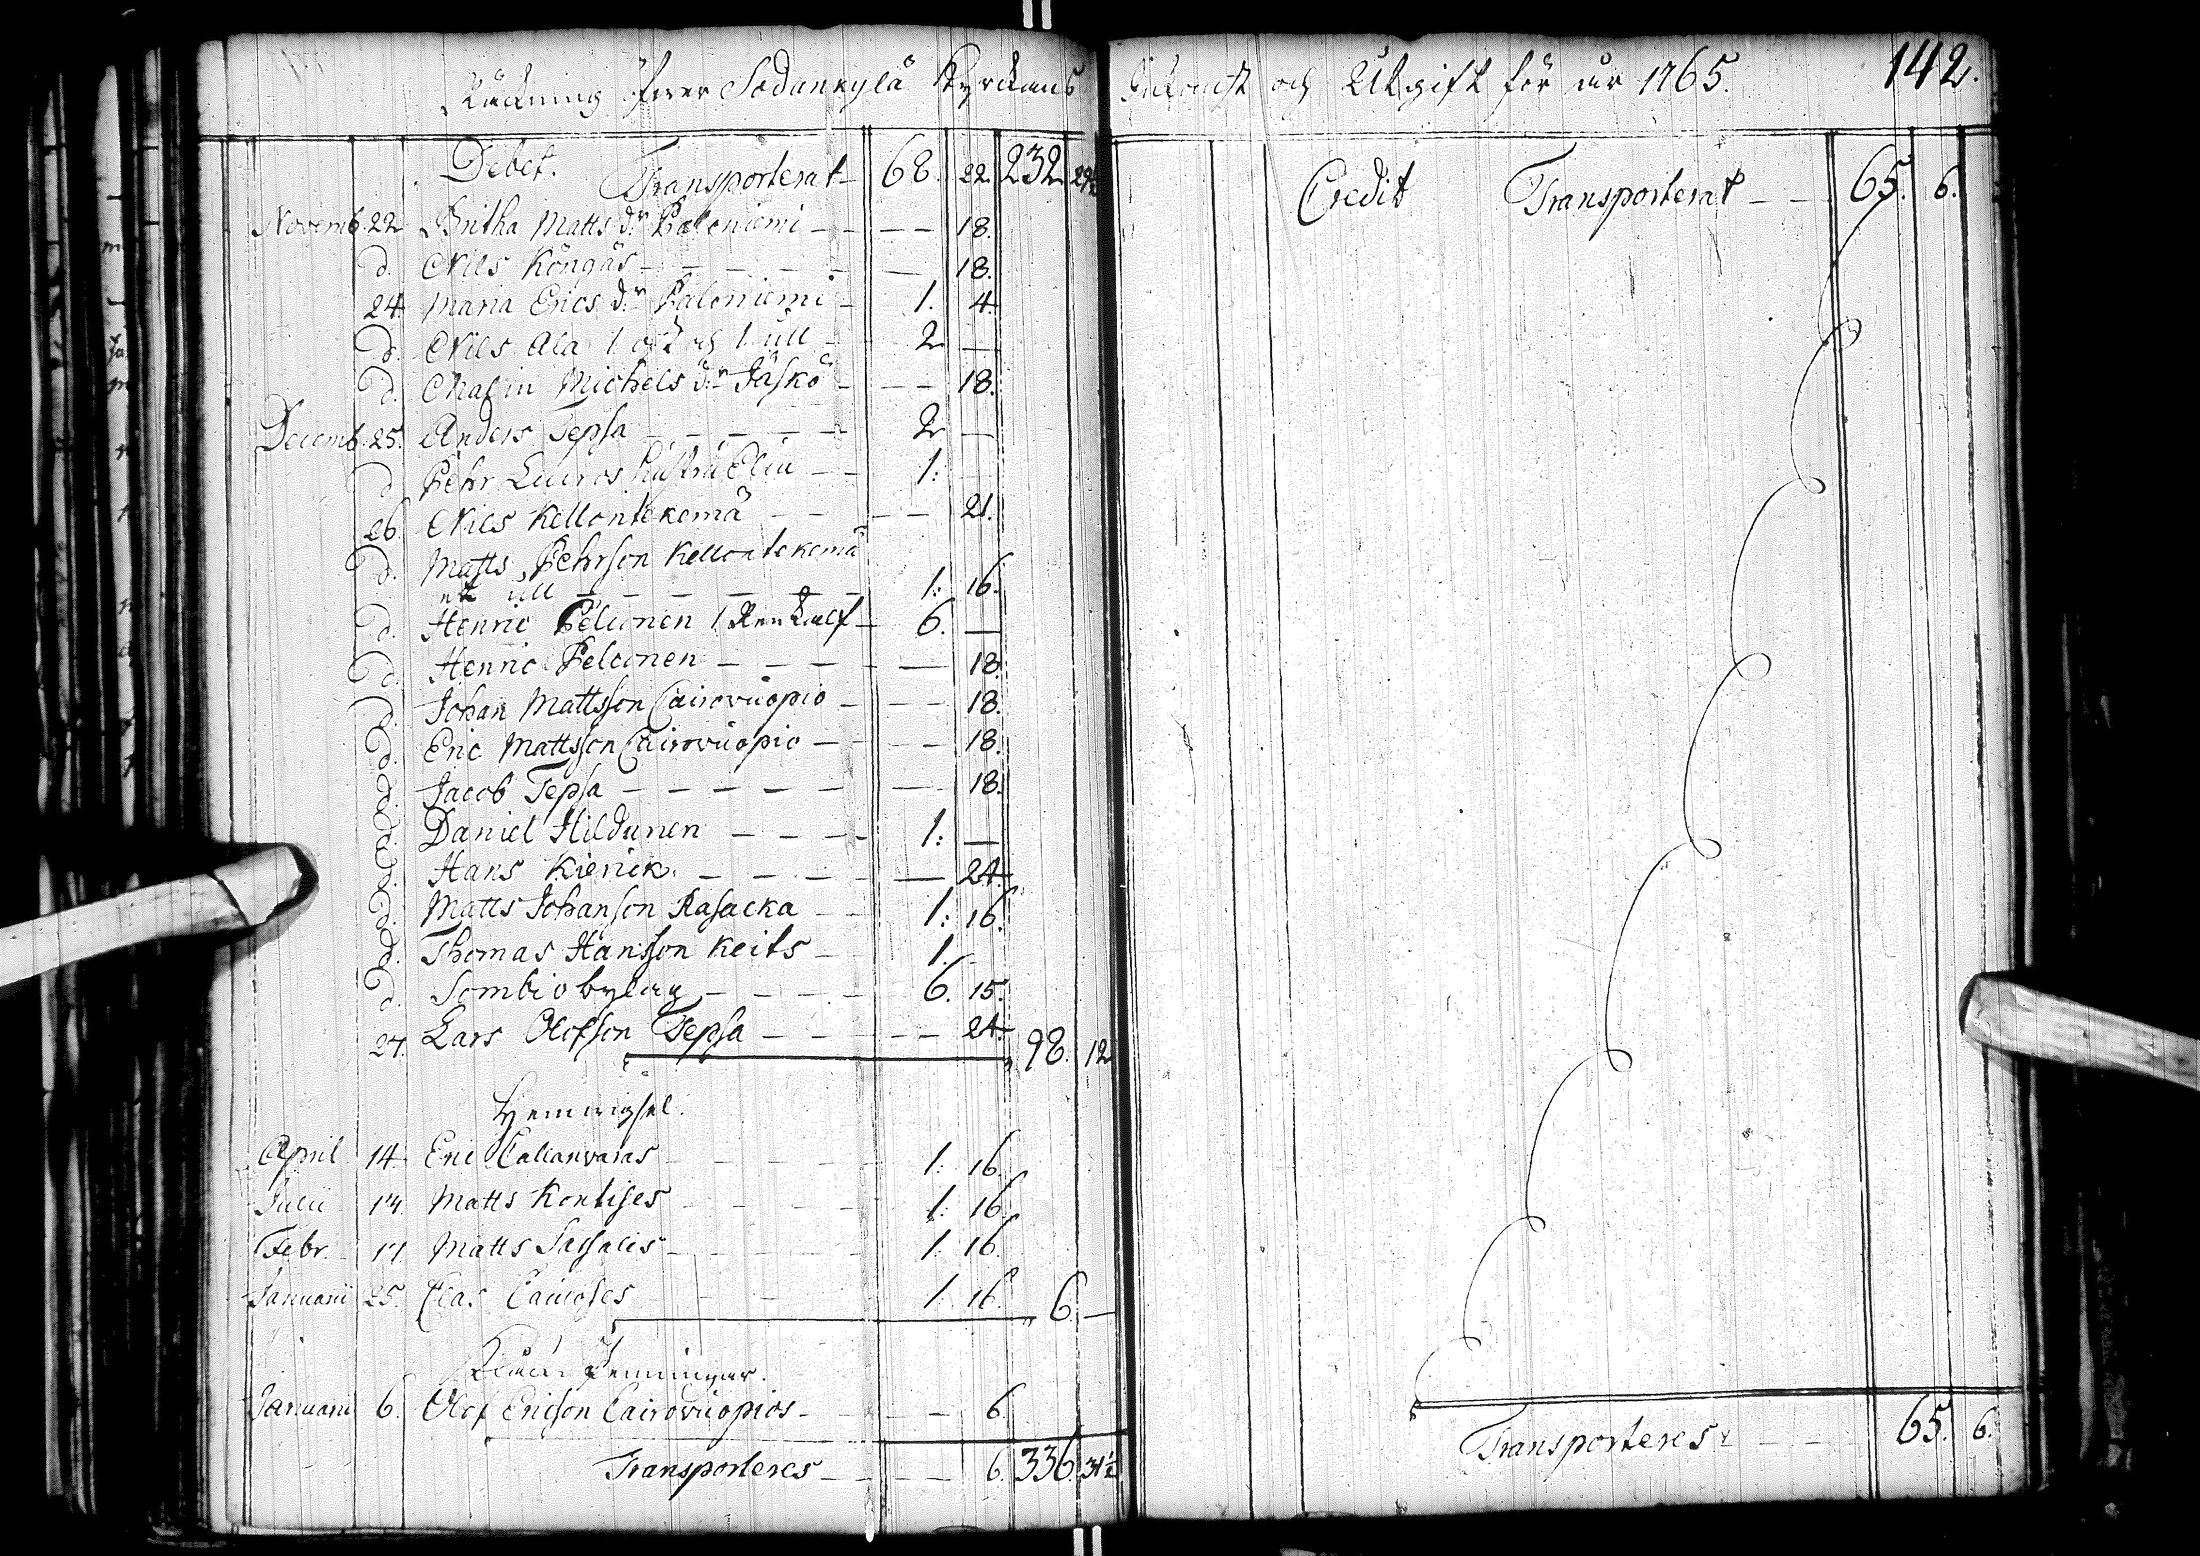 Räckning öfwer Sodankylä Kyrckans Inkomst och Utgift för år 1765. 142.
Debet. Transporterat 68. 22. 232 29½
Novemb. 22 Britha Matts dr Paloniemi 18.
d. Nils Köngäs 18.
24. Maria Erics dr Paloniemi 1. 4.
d. Nils Ala 1 ost och 1 ull 2 —
d. Malin Michels dr Jäskö 18.
Decemb. 25. Anders Tepsa 2 —
d. Pehr Luiros hustru Elin 1:
26. Nils Kellontekemä 21.
d. Matts Pehrson Kellontekemä
ett ull 1: 16.
d. Henric Pelconen 1 Ren Kalf 6. —
d. Henric Pelconen 18.
d. Johan Mattsson Cairovuopio 18.
d. Eric Mattsson Cairovuopio 18.
d. Jacob Tepsa 18.
d. Daniel Hildunen 1: —
d. Hans Kierick. 24.
d. Matts Johanson Rasacka 1: 16.
d. Thomas Hansson Keits 1.
d. Sombio bylag 6. 15.
27. Lars Olofson Tepsa 24. 98. 12
Hemwigsel.
April 14 Eric 1: 16.
Julii 17 Matts Kontises 1: 16.
Febr. 17 Matts Sassalis 1. 16.
Januarii 25. Clas Cairoses 1. 16. 6. —
Penningar.
Januarii 6. Olof Ericson Cairovuopios 6.
Transporteres 6. 336. 31½
Credit Transporterat 65. 6.
Transporteres 65. 6.